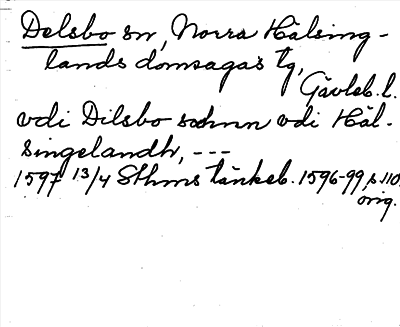 Delsbo sn, Norra Hälsing-
lands domsagas tg,
Gävleb. l.
vdi Dilsbo sochnn vdi Häl-
singelandh, ---
1597 13/4 Sthms tänkeb. 1596-99, s. 110,
orig.